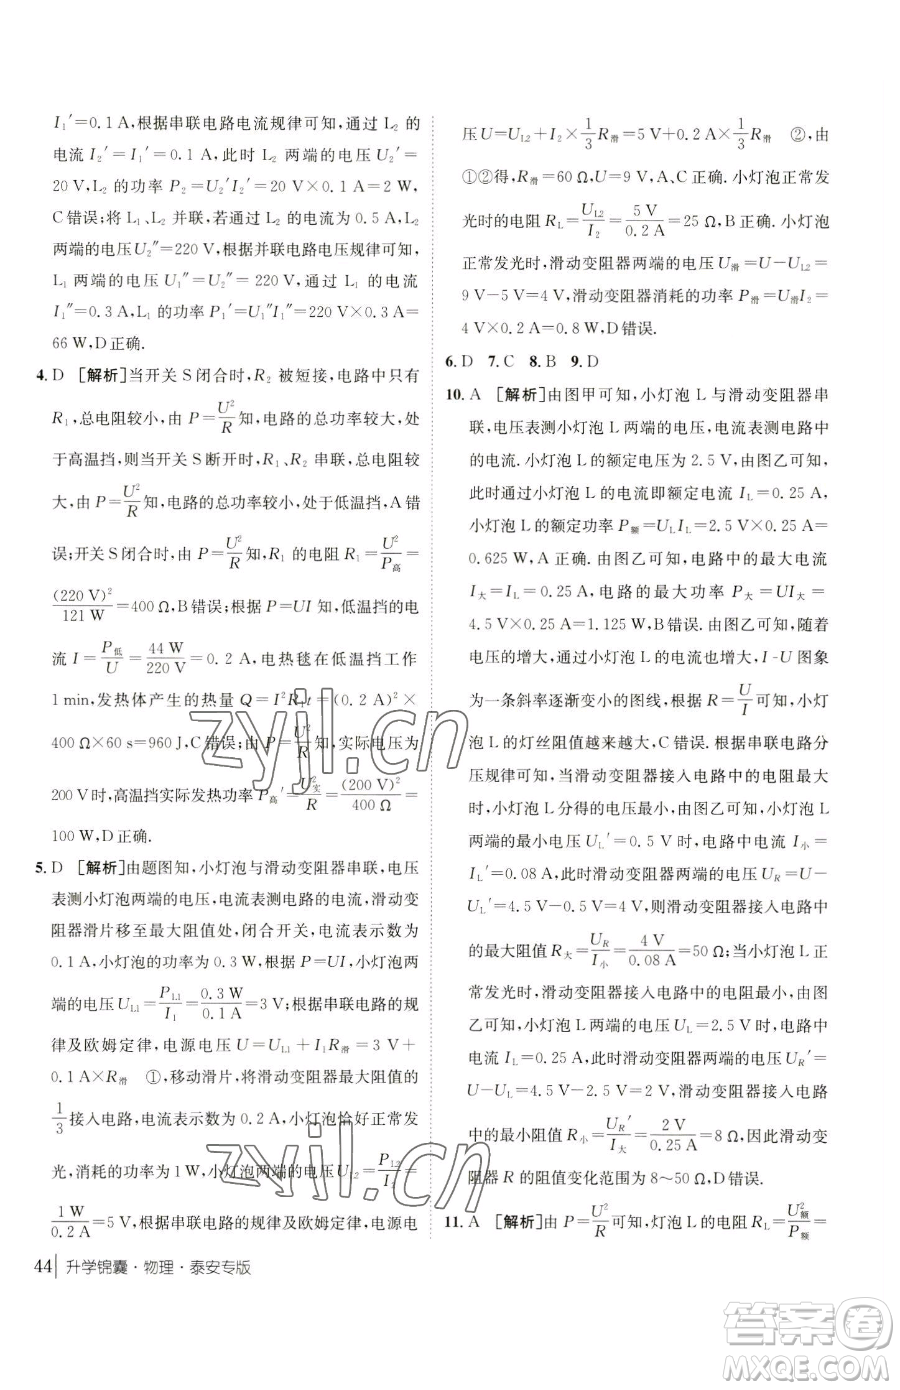 I₁′=0.1 A,根据串联电路电流规律可知,通过 L₂ 的
电流 I₂′=I₁′=0.1 A,此时 L₂ 两端的电压 U₂′=
20 V,L₂ 的功率 P₂=U₂′I₂′=20 V×0.1 A=2 W,
C错误;将 L₁、L₂ 并联,若通过 L₂ 的电流为 0.5 A,L₂
两端的电压U₂″=220 V,根据并联电路电压规律可知,
L₁ 两端的电压 U₁″=U₂″=220 V,通过 L₁ 的电流
I₁″=0.3 A,L₁ 的功率 P₁′=U₁″I₁″=220 V×0.3 A=
66 W,D正确.
4. D [解析]当开关 S 闭合时,R₂ 被短接,电路中只有
R₁,总电阻较小,由 P=U²/R知,电路的总功率较大,
处于高温挡;则当开关 S 断开时,R₁、R₂ 串联,总电阻较
大,由 P=U²/R知,电路的总功率较小,处于低温挡,A错
误;开关 S 闭合时,由 P=U²/R知,R₁ 的电阻 R₁=U²/P高=
(220 V)²/121 W=400 Ω,B错误;根据 P=UI 知,低温挡的电
流 I=P低/U=44 W/220 V=0.2 A,电热毯在低温挡工作
1 min,发热体产生的热量 Q=I²R₁t=(0.2 A)²×
400 Ω×60 s=960 J,C错误;由 P=U²/R知,实际电压为
200 V时,高温挡实际发热功率 P高′=U实²/R=(200 V)²/400 Ω=
100 W,D正确.
5. D [解析]由题图知,小灯泡与滑动变阻器串联,电压
表测小灯泡两端的电压,电流表测电路的电流,滑动变
阻器滑片移至最大阻值处,闭合开关,电流表示数为
0.1 A,小灯泡的功率为 0.3 W,根据 P=UI,小灯泡两
端的电压 U_L1=P_L1/I₁=0.3 W/0.1 A=3 V;根据串联电路的规
律及欧姆定律,电源电压 U=U_L1+I₁R滑=3 V+
0.1 A×R滑 ①,移动滑片,使滑动变阻器最大阻值的
1/3接入电路,电流表示数为 0.2 A,小灯泡恰好正常发
光,消耗的功率为 1 W,小灯泡两端的电压 U_L2=P_L2/I₂=
1 W/0.2 A=5 V,根据串联电路的规律及欧姆定律,电源电
44 升学锦囊·物理·泰安专版
压 U=U_L2+I₂×1/3R滑=5 V+0.2 A×1/3R滑 ②,由
①②得,R滑=60 Ω,U=9 V,A、C正确.小灯泡正常发
光时的电阻 R_L=U_L2/I₂=5 V/0.2 A=25 Ω,B正确.小灯泡
正常发光时,滑动变阻器两端的电压 U滑=U−U_L2=
9 V−5 V=4 V,滑动变阻器消耗的功率 P滑=U滑I₂=
4 V×0.2 A=0.8 W,D错误.
6. D 7. C 8. B 9. D
10. A [解析]由图甲可知,小灯泡 L 与滑动变阻器串
联,电压表测小灯泡 L 两端的电压,电流表测电路中
的电流.小灯泡 L 的额定电压为 2.5 V,由图乙可知,
此时通过小灯泡 L 的电流即额定电流 I_L=0.25 A,
小灯泡 L 的额定功率 P额=U_L I_L=2.5 V×0.25 A=
0.625 W,A 正确.由图乙可知,电路中的最大电流
I大=I_L=0.25 A,电路的最大功率 P大=UI大=
4.5 V×0.25 A=1.125 W,B错误.由图乙可知,随着
电压的增大,通过小灯泡 L 的电流也增大,I-U 图象
为一条斜率逐渐变小的图线,根据 R=U/I可知,小灯
泡 L 的灯丝阻值越来越大,C错误.根据串联电路分
压规律可知,当滑动变阻器接入电路中的电阻最大
时,小灯泡 L 分得的电压最小,由图乙可知,小灯泡 L
两端的最小电压 U_L′=0.5 V,电路中的电流 I小=
I_L′=0.08 A,此时滑动变阻器两端的电压 U_R=U−
U_L′=4.5 V−0.5 V=4 V,则滑动变阻器接入电路中
的最大阻值 R大=U_R/I小=4 V/0.08 A=50 Ω;当小灯泡 L正
常发光时,滑动变阻器接入电路中的电阻最小,由图
乙可知,小灯泡 L两端的电压 U_L=2.5 V时,电路中
电流 I_L=0.25 A,滑动变阻器两端的电压 U_R′=
U−U_L=4.5 V−2.5 V=2 V,滑动变阻器接入电路
中的最小阻值 R小=U_R′/I大=2 V/0.25 A=8 Ω,因此滑动变
阻器 R 的阻值变化范围为 8~50 Ω,D错误.
11. A [解析]由 P=U²/R可知,灯泡的电阻 R_L=U额²/P额=
zyjl.cn
zyjl.cn
答案圈
MXQE.COM